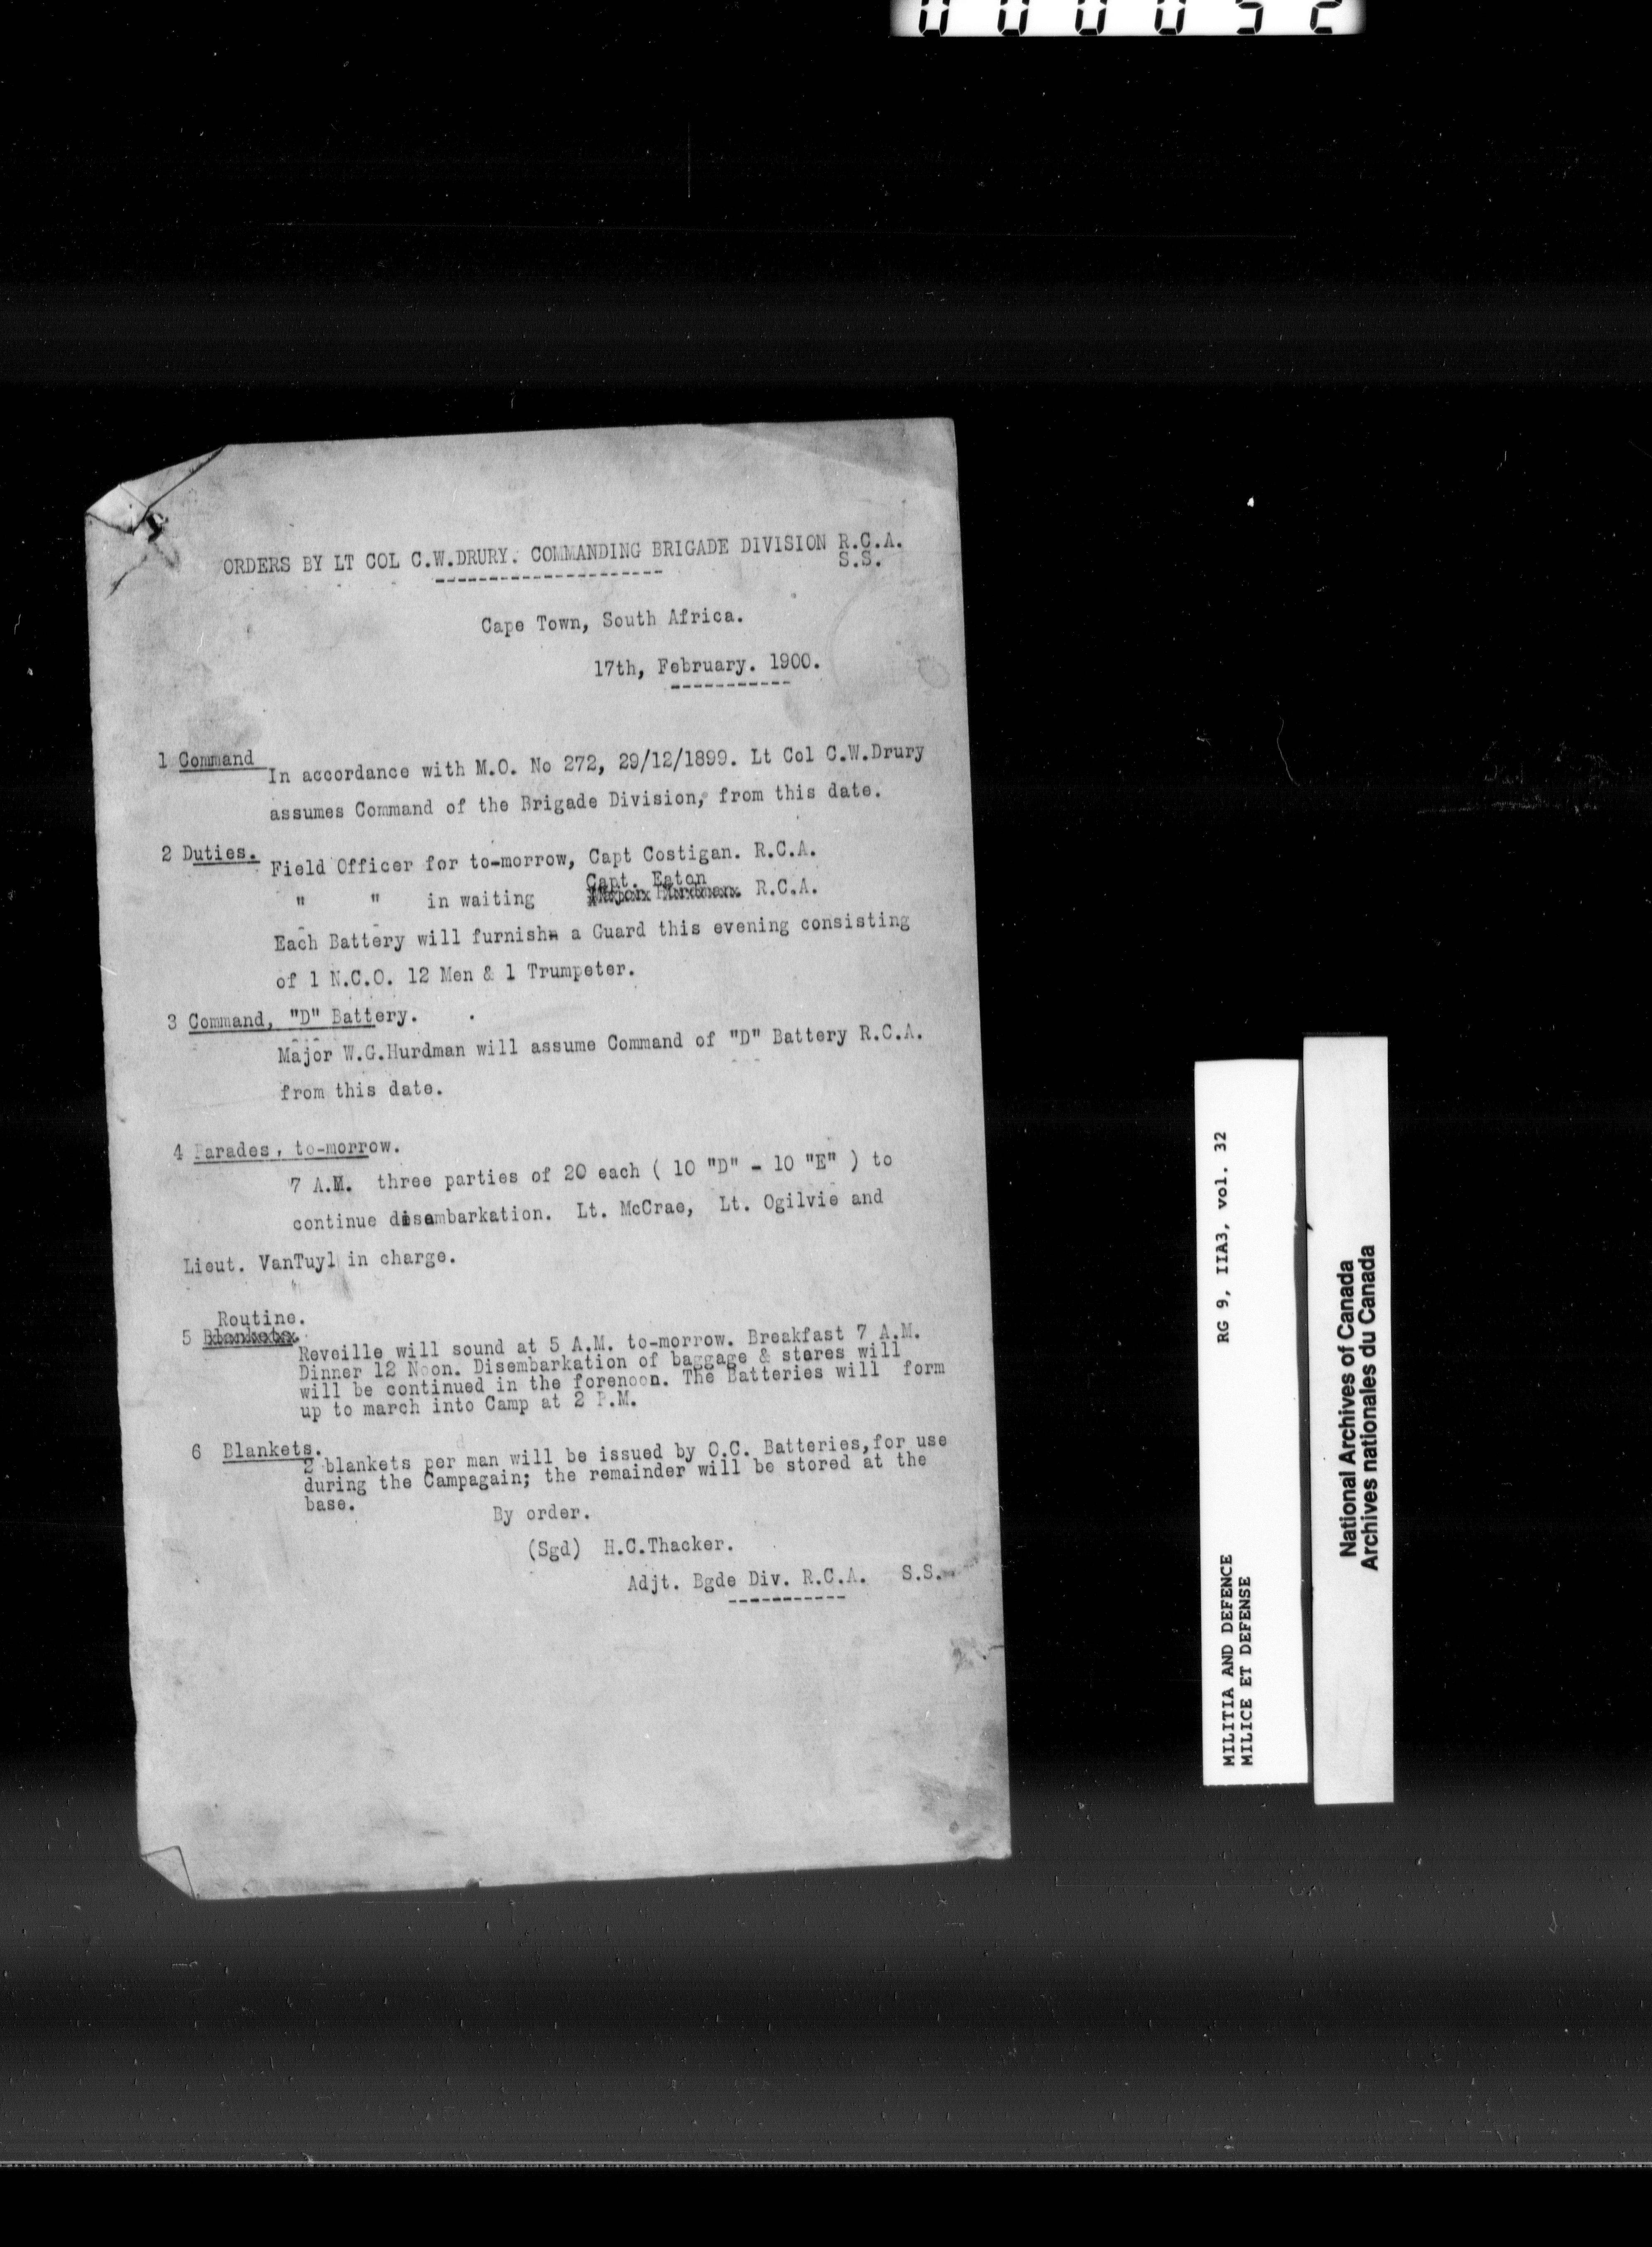 000052
ORDERS BY LT COL C.W.DRURY. COMMANDING BRIGADE DIVISION R.C.A.
S.S.
Cape Town, South Africa.
17th, February. 1900.
1 Command
In accordance with M.O. No 272, 29/12/1899. Lt Col C.W.Drury
assumes Command of the Brigade Division, from this date.
2 Duties.
Field Officer for to-morrow, Capt Costigan. R.C.A.
Capt. Eaton
" " in waiting Major Hurdman. R.C.A.
Each Battery will furnish a Guard this evening consisting
of 1 N.C.O. 12 Men & 1 Trumpeter.
3 Command, "D" Battery.
Major W.G.Hurdman will assume Command of "D" Battery R.C.A.
from this date.
4 Parades, to-morrow.
7 A.M. three parties of 20 each ( 10 "D" - 10 "E" ) to
continue disembarkation. Lt. McCrae, Lt. Ogilvie and
Lieut. VanTuyl in charge.
Routine.
5 Blankets.
Reveille will sound at 5 A.M. to-morrow. Breakfast 7 A.M.
Dinner 12 Noon. Disembarkation of baggage & stores will
will be continued in the forenoon. The Batteries will form
up to march into Camp at 2 P.M.
6 Blankets.
2 blankets per man will be issued by O.C. Batteries, for use
during the Campagain; the remainder will be stored at the
base.
By order.
(Sgd) H.C.Thacker.
Adjt. Bgde Div. R.C.A. S.S.
MILITIA AND DEFENCE RG 9, IIA3, vol. 32
MILICE ET DEFENSE
National Archives of Canada
Archives nationales du Canada